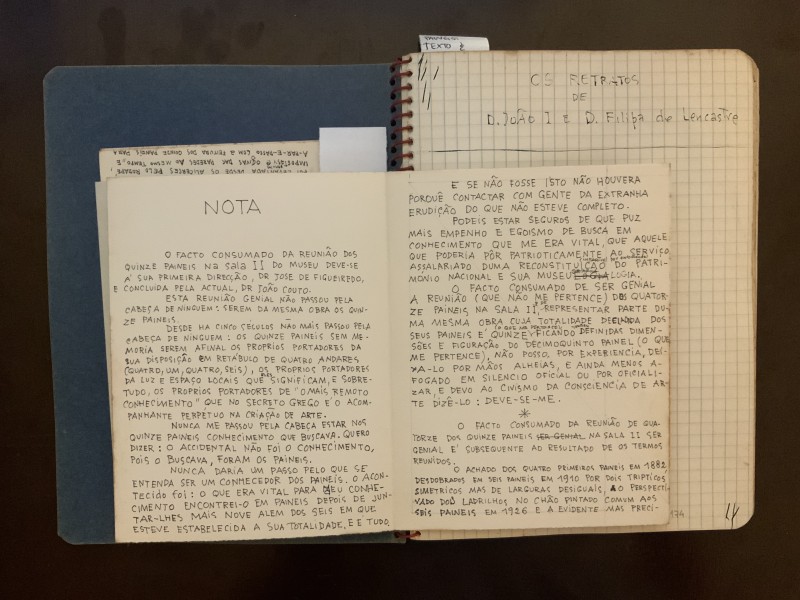 TEXTO
OS RETRATOS
DE
D. João I E D. Filipa de Lencastre
NOTA
O FACTO CONSUMADO DA REUNIÃO DOS
QUINZE PAINEIS NA sala II DO MUSEU DEVE-SE
Á SUA PRIMEIRA DIRECÇÃO, DR JOSE DE FIGUEIREDO,
E CONCLUIDA PELA ACTUAL, DR JOÃO COUTO.
ESTA REUNIÃO GENIAL NÃO PASSOU PELA
CABEÇA DE NINGUEM: SEREM DA MESMA OBRA OS QUIN-
ZE PAINEIS.
DESDE HA CINCO SECULOS NÃO MAIS PASSOU PELA
CABEÇA DE NINGUEM: OS QUINZE PAINEIS SEM ME-
MORIA SEREM AFINAL OS PROPRIOS PORTADORES DA
SUA DISPOSIÇÃO em RETÁBULO DE QUATRO ANDARES
(QUATRO, UM, QUATRO, SEIS), OS PROPRIOS PORTADORES
DA LUZ E ESPAÇO LOCAIS QUE SIGNIFICAM, E SOBRE-
TUDO, OS PROPRIOS PORTADORES DE "O MAIS REMOTO
CONHECIMENTO" QUE NO SECRETO GREGO E O ACOM-
PANHANTE PERPÉTUO NA CRIAÇÃO DE ARTE.
NUNCA ME PASSOU PELA CABEÇA ESTAR NOS
QUINZE PAINEIS CONHECIMENTO QUE BUSCAVA. QUERO
DIZER: O ACCIDENTAL NÃO FOI O CONHECIMENTO,
POIS O BUSCAVA, FORAM OS PAINEIS.
NUNCA DARIA UM PASSO PELO QUE SE
ENTENDA SER UM CONHECEDOR DOS PAINEIS. O ACON-
TECIDO FOI: O QUE ERA VITAL PARA MEU CONHE-
CIMENTO ENCONTREI-O EM PAINEIS DEPOIS DE JUN-
TAR-LHES MAIS NOVE ALEM DOS SEIS EM QUE
ESTEVE ESTABELECIDA A SUA TOTALIDADE, E E TUDO.
E SE NÃO FOSSE ISTO NÃO HOUVERA
PORQUÊ CONTACTAR COM GENTE DA EXTRANHA
ERUDIÇÃO DO QUE NÃO ESTEVE COMPLETO.
PODEIS ESTAR SEGUROS DE QUE PUZ
MAIS EMPENHO E EGOISMO DE BUSCA EM
CONHECIMENTO QUE ME ERA VITAL, QUE AQUELE
QUE PODERIA PÔR PATRIOTICAMENTE AO SERVIÇO
ASSALARIADO DUMA RECONSTITUIÇÃO DO PATRI-
MÓNIO NACIONAL E SUA MUSEU LOGIA.
O FACTO CONSUMADO DE SER GENIAL
A REUNIÃO (QUE NÃO ME PERTENCE) DOS QUATOR-
ZE PAINEIS NA SALA II, E DE REPRESENTAR PARTE DU-
MA MESMA OBRA CUJA TOTALIDADE DOS
SEUS PAINEIS E QUINZE, FICANDO DEFINIDAS DIMEN-
SÕES E FIGURAÇÃO DO DECIMOQUINTO PAINEL (O QUE
ME PERTENCE), NÃO POSSO, POR EXPERIENCIA, DEI-
XA-LO POR MÃOS ALHEIAS, E AINDA MENOS A-
FOGADO EM SILENCIO OFICIAL OU POR OFICIALI-
ZAR, E DEVO AO CIVISMO DA CONSCIENCIA DE AR-
TE DIZÊ-LO: DEVE-SE-ME.
*
O FACTO CONSUMADO DA REUNIÃO DE QUA-
TORZE DOS QUINZE PAINEIS SER GENIAL NA SALA II SER
GENIAL É SUBSEQUENTE AO RESULTADO DE OS TERMOS
REUNIDOS.
O ACHADO DOS QUATRO PRIMEIROS PAINEIS EM 1882
DESDOBRADOS EM SEIS PAINEIS EM 1910 POR DOIS TRIPTICOS
SIMETRICOS MAS DE LARGURAS DESIGUAIS, AO PERSPECTI-
VADO DOS LADRILHOS NO CHÃO PINTADO COMUM AOS
SEIS PAINEIS EM 1926 E A EVIDENTE MAS PRECI-
174